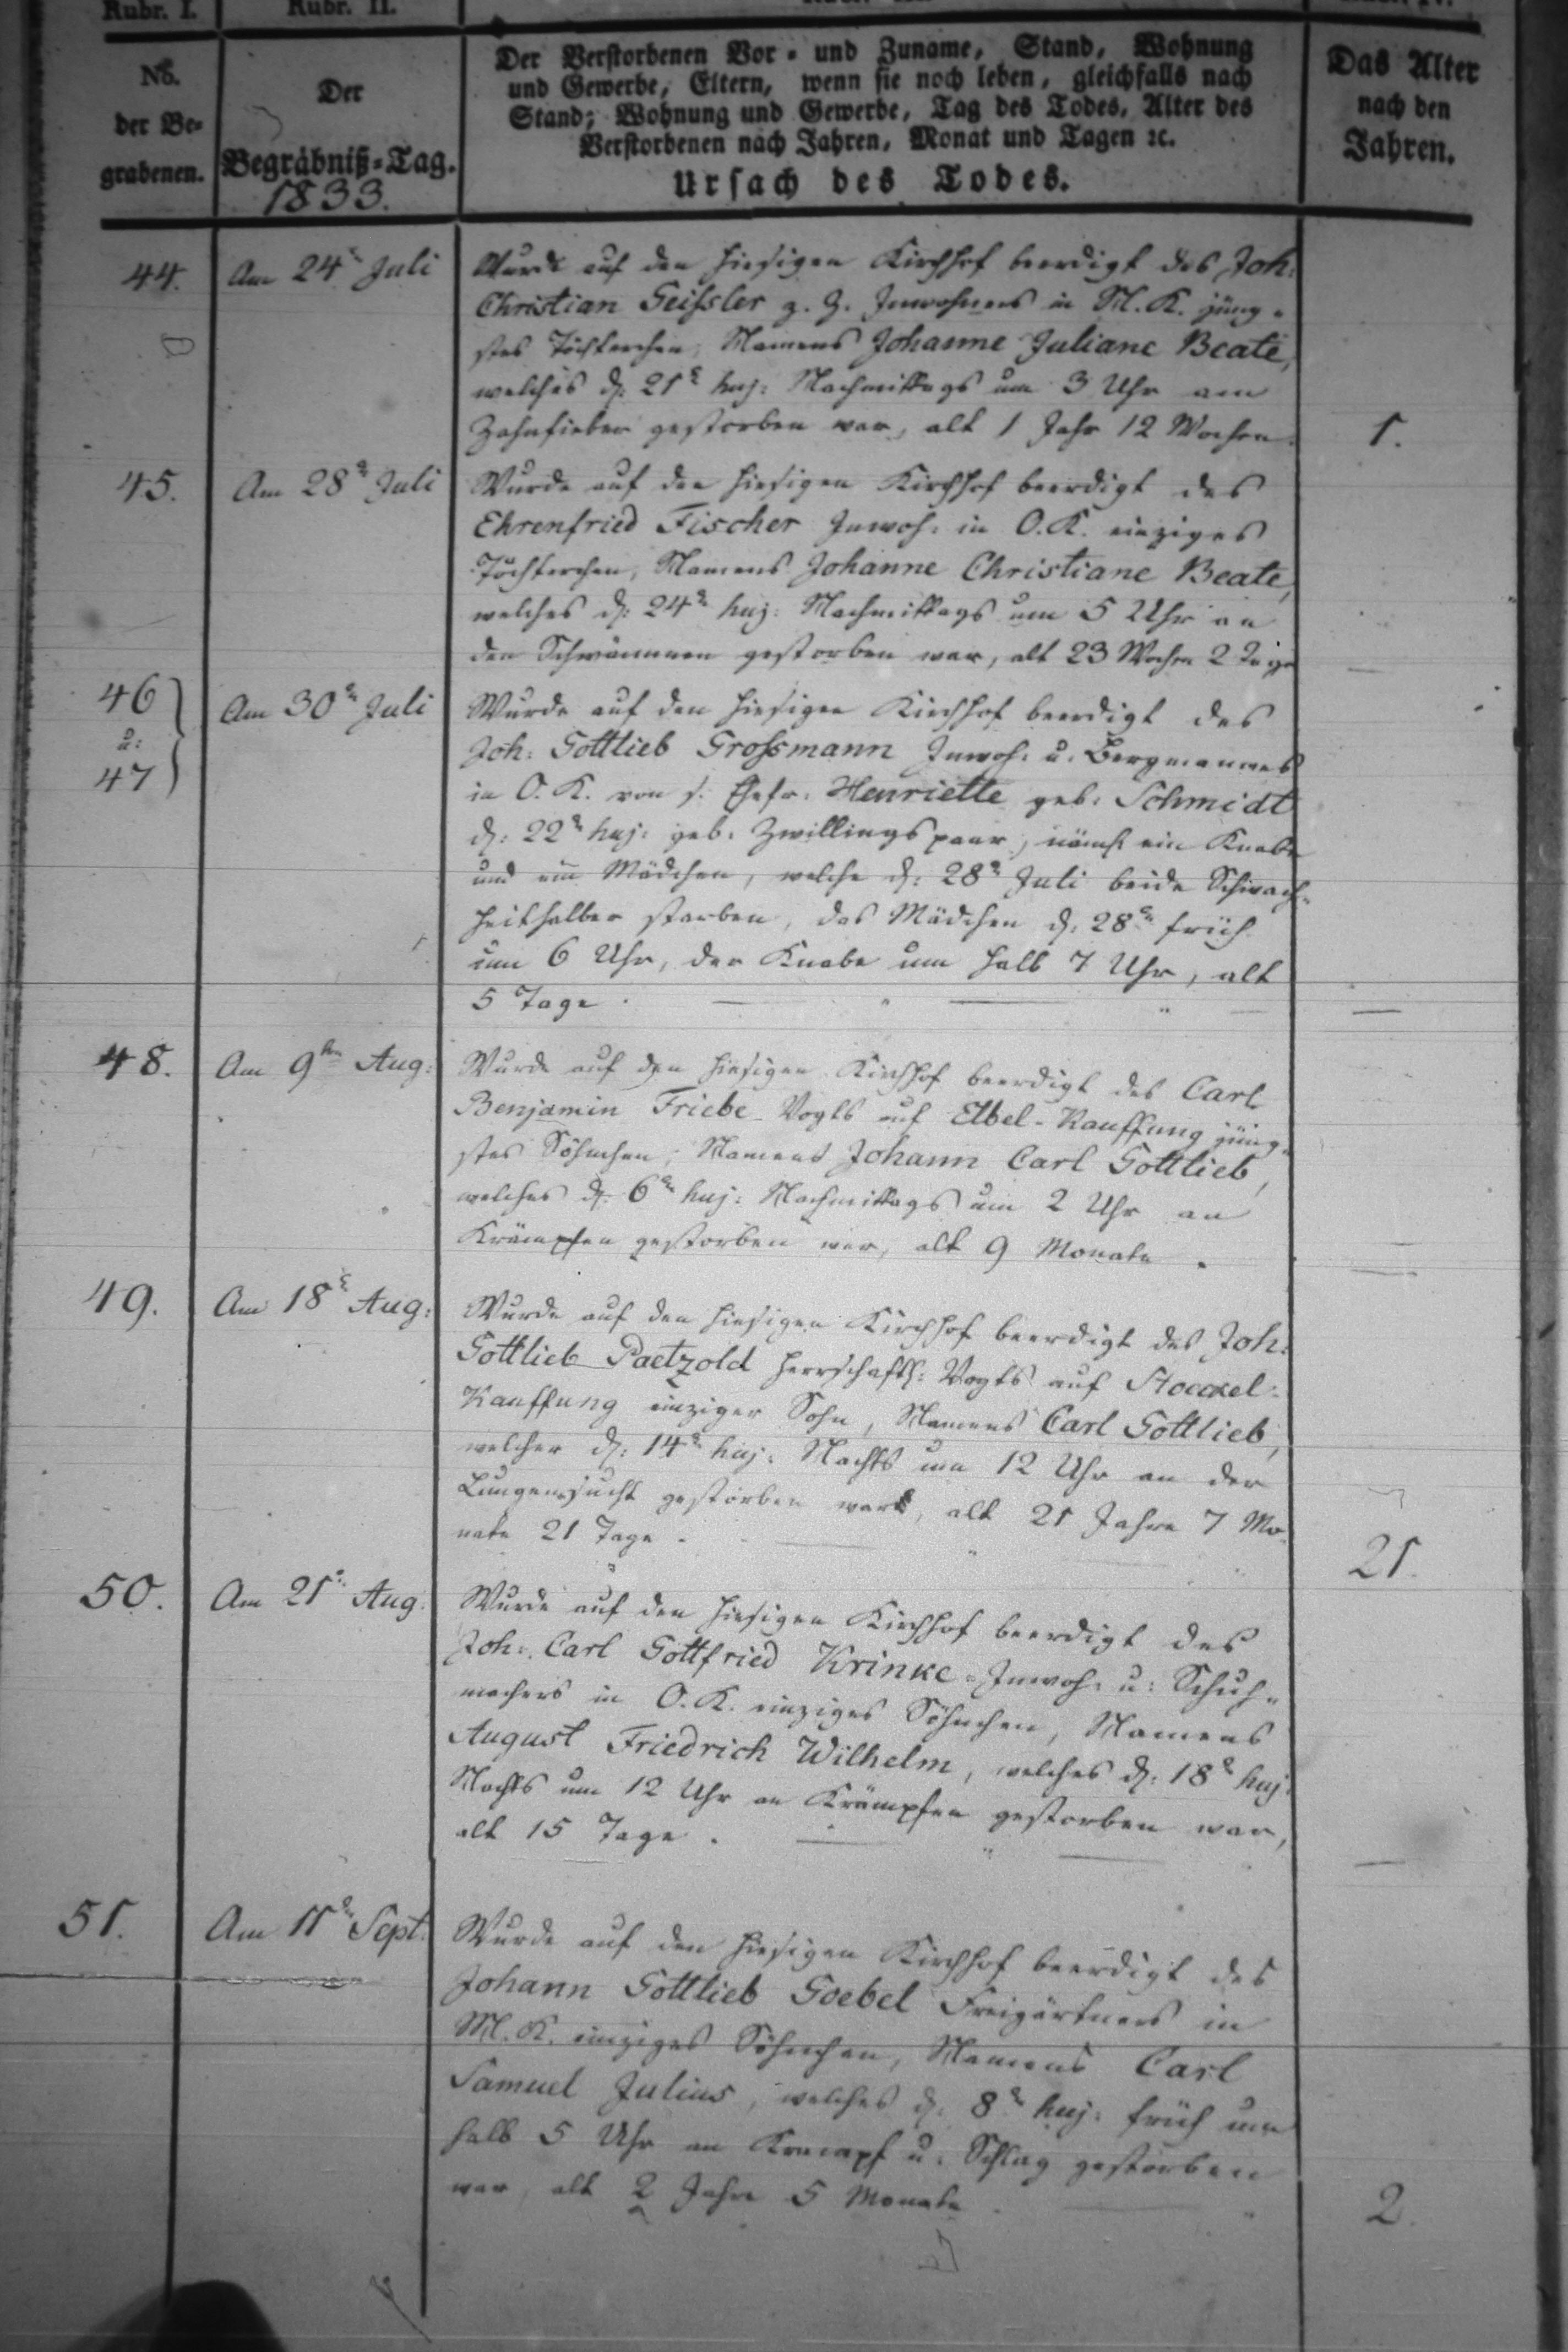 Rubr. I. Rubr. II.
No. der Begrabenen.
Der Begräbniß-Tag. 1833.
Der Verstorbenen Vor- und Zuname, Stand, Wohnung
und Gewerbe, Eltern, wenn sie noch leben, gleichfalls nach
Stand; Wohnung und Gewerbe, Tag des Todes, Alter des
Verstorbenen nach Jahren, Monat und Tagen ꝛc.
Ursach des Todes.
Das Alter
nach den
Jahren.
44. Am 24n Juli Wurde auf den hiesigen Kirchhof beerdigt des Joh:
Christian Geißler z. Z. Inwohners in M. K. jüng-
stes Töchterchen, Namens Johanne Juliane Beate,
welches d: 21n huj: Nachmittags um 3 Uhr am
Zahnfieber gestorben war, alt 1 Jahr 12 Wochen. 1.
45. Am 28n Juli Wurde auf den hiesigen Kirchhof beerdigt des
Ehrenfried Fischer Inwoh: in O. K. einziges
Töchterchen, Namens Johanne Christiane Beate,
welches d: 24n huj: Nachmittags um 5 Uhr an
den Schwämmen gestorben war, alt 23 Wochen 2 Tage —
46 u: 47 Am 30n Juli Wurde auf den hiesigen Kirchhof beerdigt des
Joh: Gottlieb Großmann Inwoh: u. Bergmannes
in O. K. von s. Ehefr: Henriette geb: Schmidt
d: 22n huj: geb: Zwillingspaar, näml ein Knabe
und ein Mädchen, welche d: 28n Juli beide Schwach-
heithalber starben, das Mädchen d: 28n früh
um 6 Uhr, der Knabe um halb 7 Uhr, alt
5 Tage. —
48. Am 9ten Aug: Wurde auf den hiesigen Kirchhof beerdigt des Carl
Benjamin Friebe Vogts auf Elbel-Kauffung jüng-
stes Söhnchen, Namens Johann Carl Gottlieb,
welches d: 6n huj: Nachmittags um 2 Uhr an
Krämpfen gestorben war, alt 9 Monate. —
49. Am 18n Aug: Wurde auf den hiesigen Kirchhof beerdigt des Joh:
Gottlieb Paetzold herrschaftl: Vogts auf Stoeckel-
Kauffung einziger Sohn, Namens Carl Gottlieb,
welcher d: 14n huj: Nachts um 12 Uhr an der
Lungensucht gestorben war, alt 21 Jahre 7 Mo-
nate 21 Tage. 21.
50. Am 21n Aug. Wurde auf den hiesigen Kirchhof beerdigt des
Joh: Carl Gottfried Krinke Inwoh: u: Schuh-
machers in O. K. einziges Söhnchen, Namens
August Friedrich Wilhelm, welches d: 18n huj:
Nachts um 12 Uhr an Krämpfen gestorben war,
alt 15 Tage. —
51. Am 11n Sept. Wurde auf den hiesigen Kirchhof beerdigt des
Johann Gottlieb Goebel Freigärtners in
M. K. einziges Söhnchen, Namens Carl
Samuel Julius, welches d: 8n huj: früh um
halb 5 Uhr an Krampf u: Schlag gestorben
war, alt 2 Jahre 5 Monate. 2.